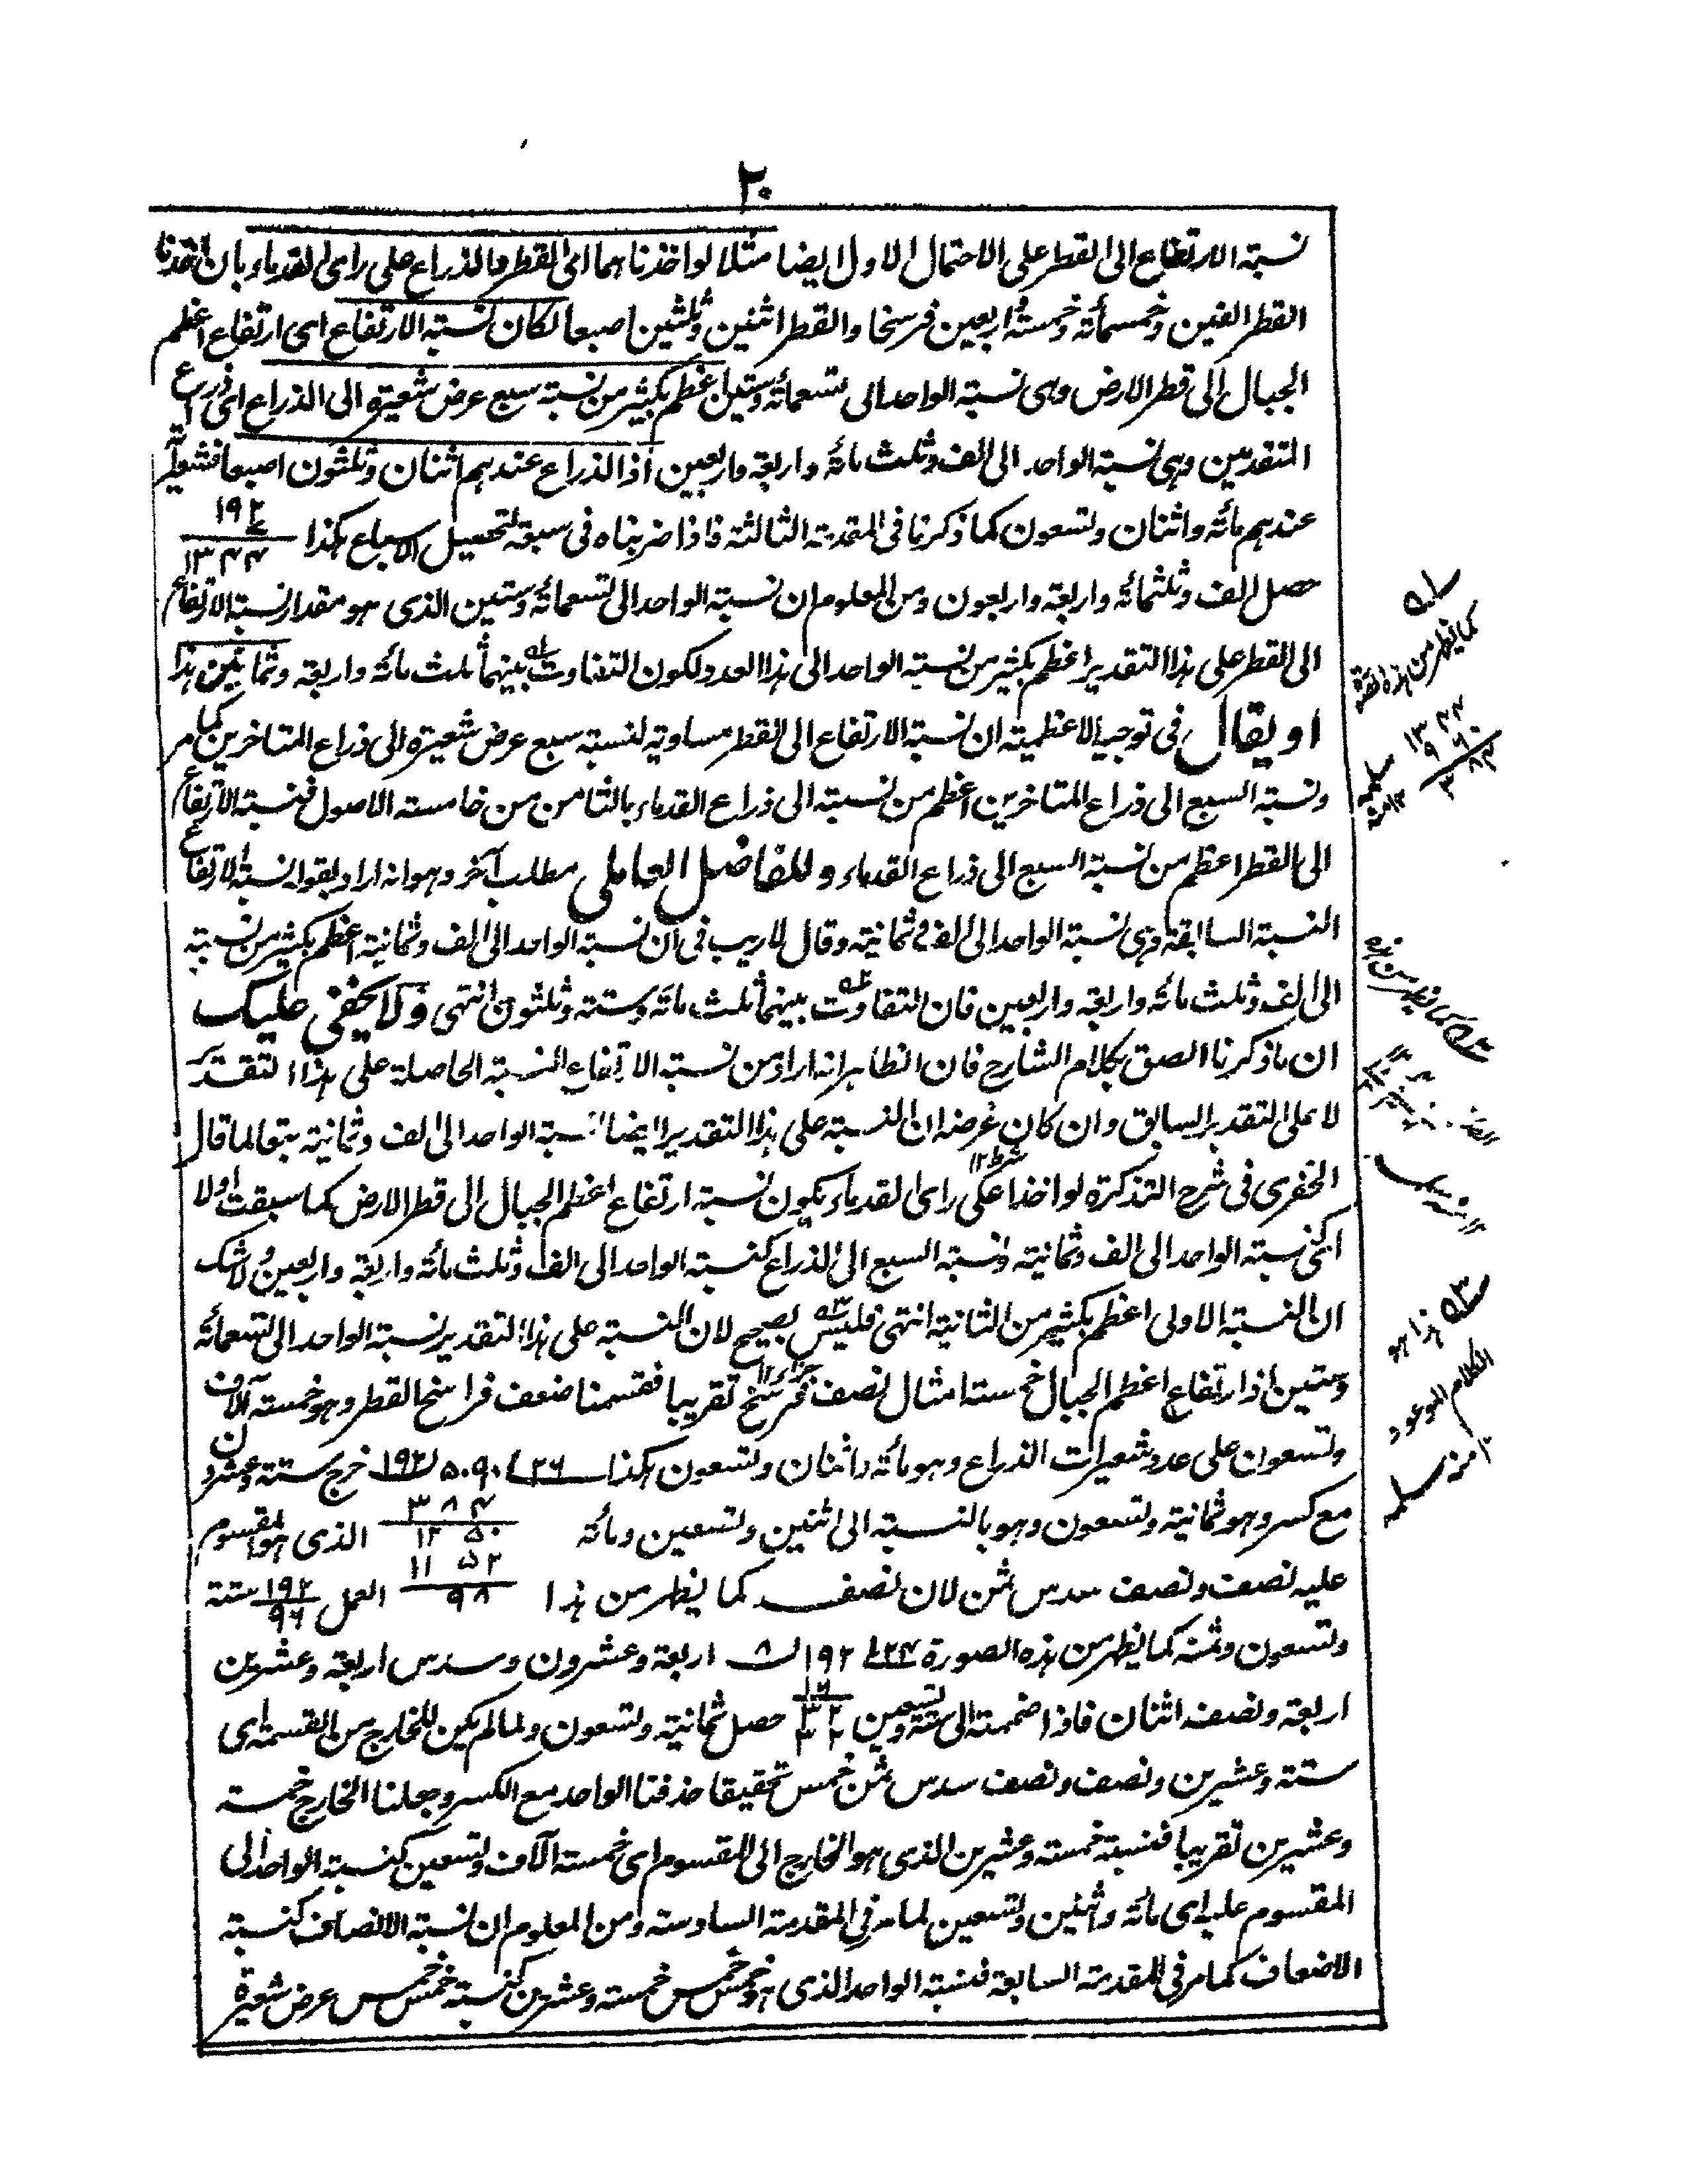 ٢٠
نسبته الارتفاع الى القطر على الاحتمال الاول ايضا مثلا لو اخذناهما اى القطر والذراع على راى القدماء بان اخذنا
القطر الفين وخمسمائة وخمسة واربعين فرسخا والقطر اثنين وثلثين اصبعا لكان نسبته الارتفاع اى ارتفاع اعظم
الجبال الى قطر الارض وهى نسبته الواحد الى تسعمائة وستين اعظم بكثير من نسبته سبع عرض شعيرة الى الذراع اى ذراع
المتقدمين وهى نسبته الواحد الى الف وثلث مائة واربعة واربعين اذ الذراع عندهم اثنان وثلثون اصبعا فشعيراته
عندهم مائة واثنان وتسعون كما ذكرنا فى المقدمة الثالثة فاذا ضربناه فى سبعة لتحصيل الاسباع هكذا ١٩٢ ٧ ١٣٤٤
حصل الف وثلثمائة واربعة واربعون ومن المعلوم ان نسبته الواحد الى تسعمائة وستين الذى هو مقدار نسبته الارتفاع
الى القطر على هذا التقدير اعظم بكثير من نسبته الواحد الى هذا العدد لكون التفاوت بينهما ثلث مائة واربعة وثمانين هذا
او يقال فى توجيه الاعظمية ان نسبته الارتفاع الى القطر مساوية لنسبته سبع عرض شعيرة الى ذراع المتاخرين كما مر
ونسبته السبع الى ذراع المتاخرين اعظم من نسبته الى ذراع القدماء بالثامن من خامسته الاصول فنسبته الارتفاع
الى القطر اعظم من نسبته السبع الى ذراع القدماء وللفاضل العاملى مطلب آخر وهو انه اراد بقوله نسبته الارتفاع
النسبته السابقة وهى نسبته الواحد الى الف وثمانية وقال لاريب فى ان نسبته الواحد الى الف وثمانية اعظم بكثير من نسبته
الى الف وثلث مائة واربعة واربعين فان التفاوت بينهما ثلث مائة وستة وثلثون انتهى ولا يخفى عليك
ان ما ذكرنا الصق بكلام الشارح فان الظاهر انه اراد من نسبته الارتفاع النسبته الحاصلة على هذا التقدير
لا على التقدير السابق وان كان غرضه ان النسبته على هذا التقدير ايضا نسبته الواحد الى الف وثمانية تبعا لما قال
الخفرى فى شرح التذكرة لو اخذا على راى القدماء يكون نسبته ارتفاع اعظم الجبال الى قطر الارض كما سبقت اولا
اى كنسبته الواحد الى الف وثمانية ونسبته السبع الى الذراع كنسبته الواحد الى الف وثلث مائة واربعة واربعين ولا شك
ان النسبته الاولى اعظم بكثير من الثانية انتهى فليس بصحيح لان النسبته على هذا التقدير نسبته الواحد الى تسعمائة
وستين اذ ارتفاع اعظم الجبال خمسة امثال نصف فرسخ تقريبا فقسمنا ضعف فراسخ القطر وهو خمسة آلاف
وتسعون على عدد شعيرات الذراع وهو مائة واثنان وتسعون هكذا ١٩٢ ٥٠٩٠ ٢٦ خرج ستة وعشرون
مع كسر وهو ثمانية وتسعون وهو بالنسبته الى اثنين وتسعين ومائة ٣٨٤ ١٢٥٠ الذى هو المقسوم
عليه نصف ونصف سدس ثمن لان نصف كما يظهر من هذا ١١٥٢ ٩٨ العمل ١٩٢ ٩٦ ستة
وتسعون وثمنه كما يظهر من هذه الصورة ٢٤ ١٩٢ ٨ اربعة وعشرون وسدس اربعة وعشرين
اربعة ونصفه اثنان فاذا ضممته الى ستة وتسعين ١٦ ٣٢ ٣٢ حصل ثمانية وتسعون ولما لم يكن للخارج من القسمة اى
ستة وعشرين ونصف ونصف سدس ثمن خمس تحقيقا حذفنا الواحد مع الكسر وجعلنا الخارج خمسة
وعشرين تقريبا فنسبته خمسة وعشرين الذى هو الخارج الى المقسوم اى خمسة آلاف وتسعين كنسبته الواحد الى
المقسوم عليه اى مائة واثنين وتسعين لما مر فى المقدمة السادسة ومن المعلوم ان نسبته الانصاف كنسبته
الاضعاف كما مر فى المقدمة السابعة فنسبته الواحد الذى هو خمس خمس خمسة وعشرين كنسبته خمس خمس عرض شعيرة
كما يظهر من هذه الصورة
١٣٤٤
٩٦٠
٣٨٤
هذا هو
الكلام الموعود